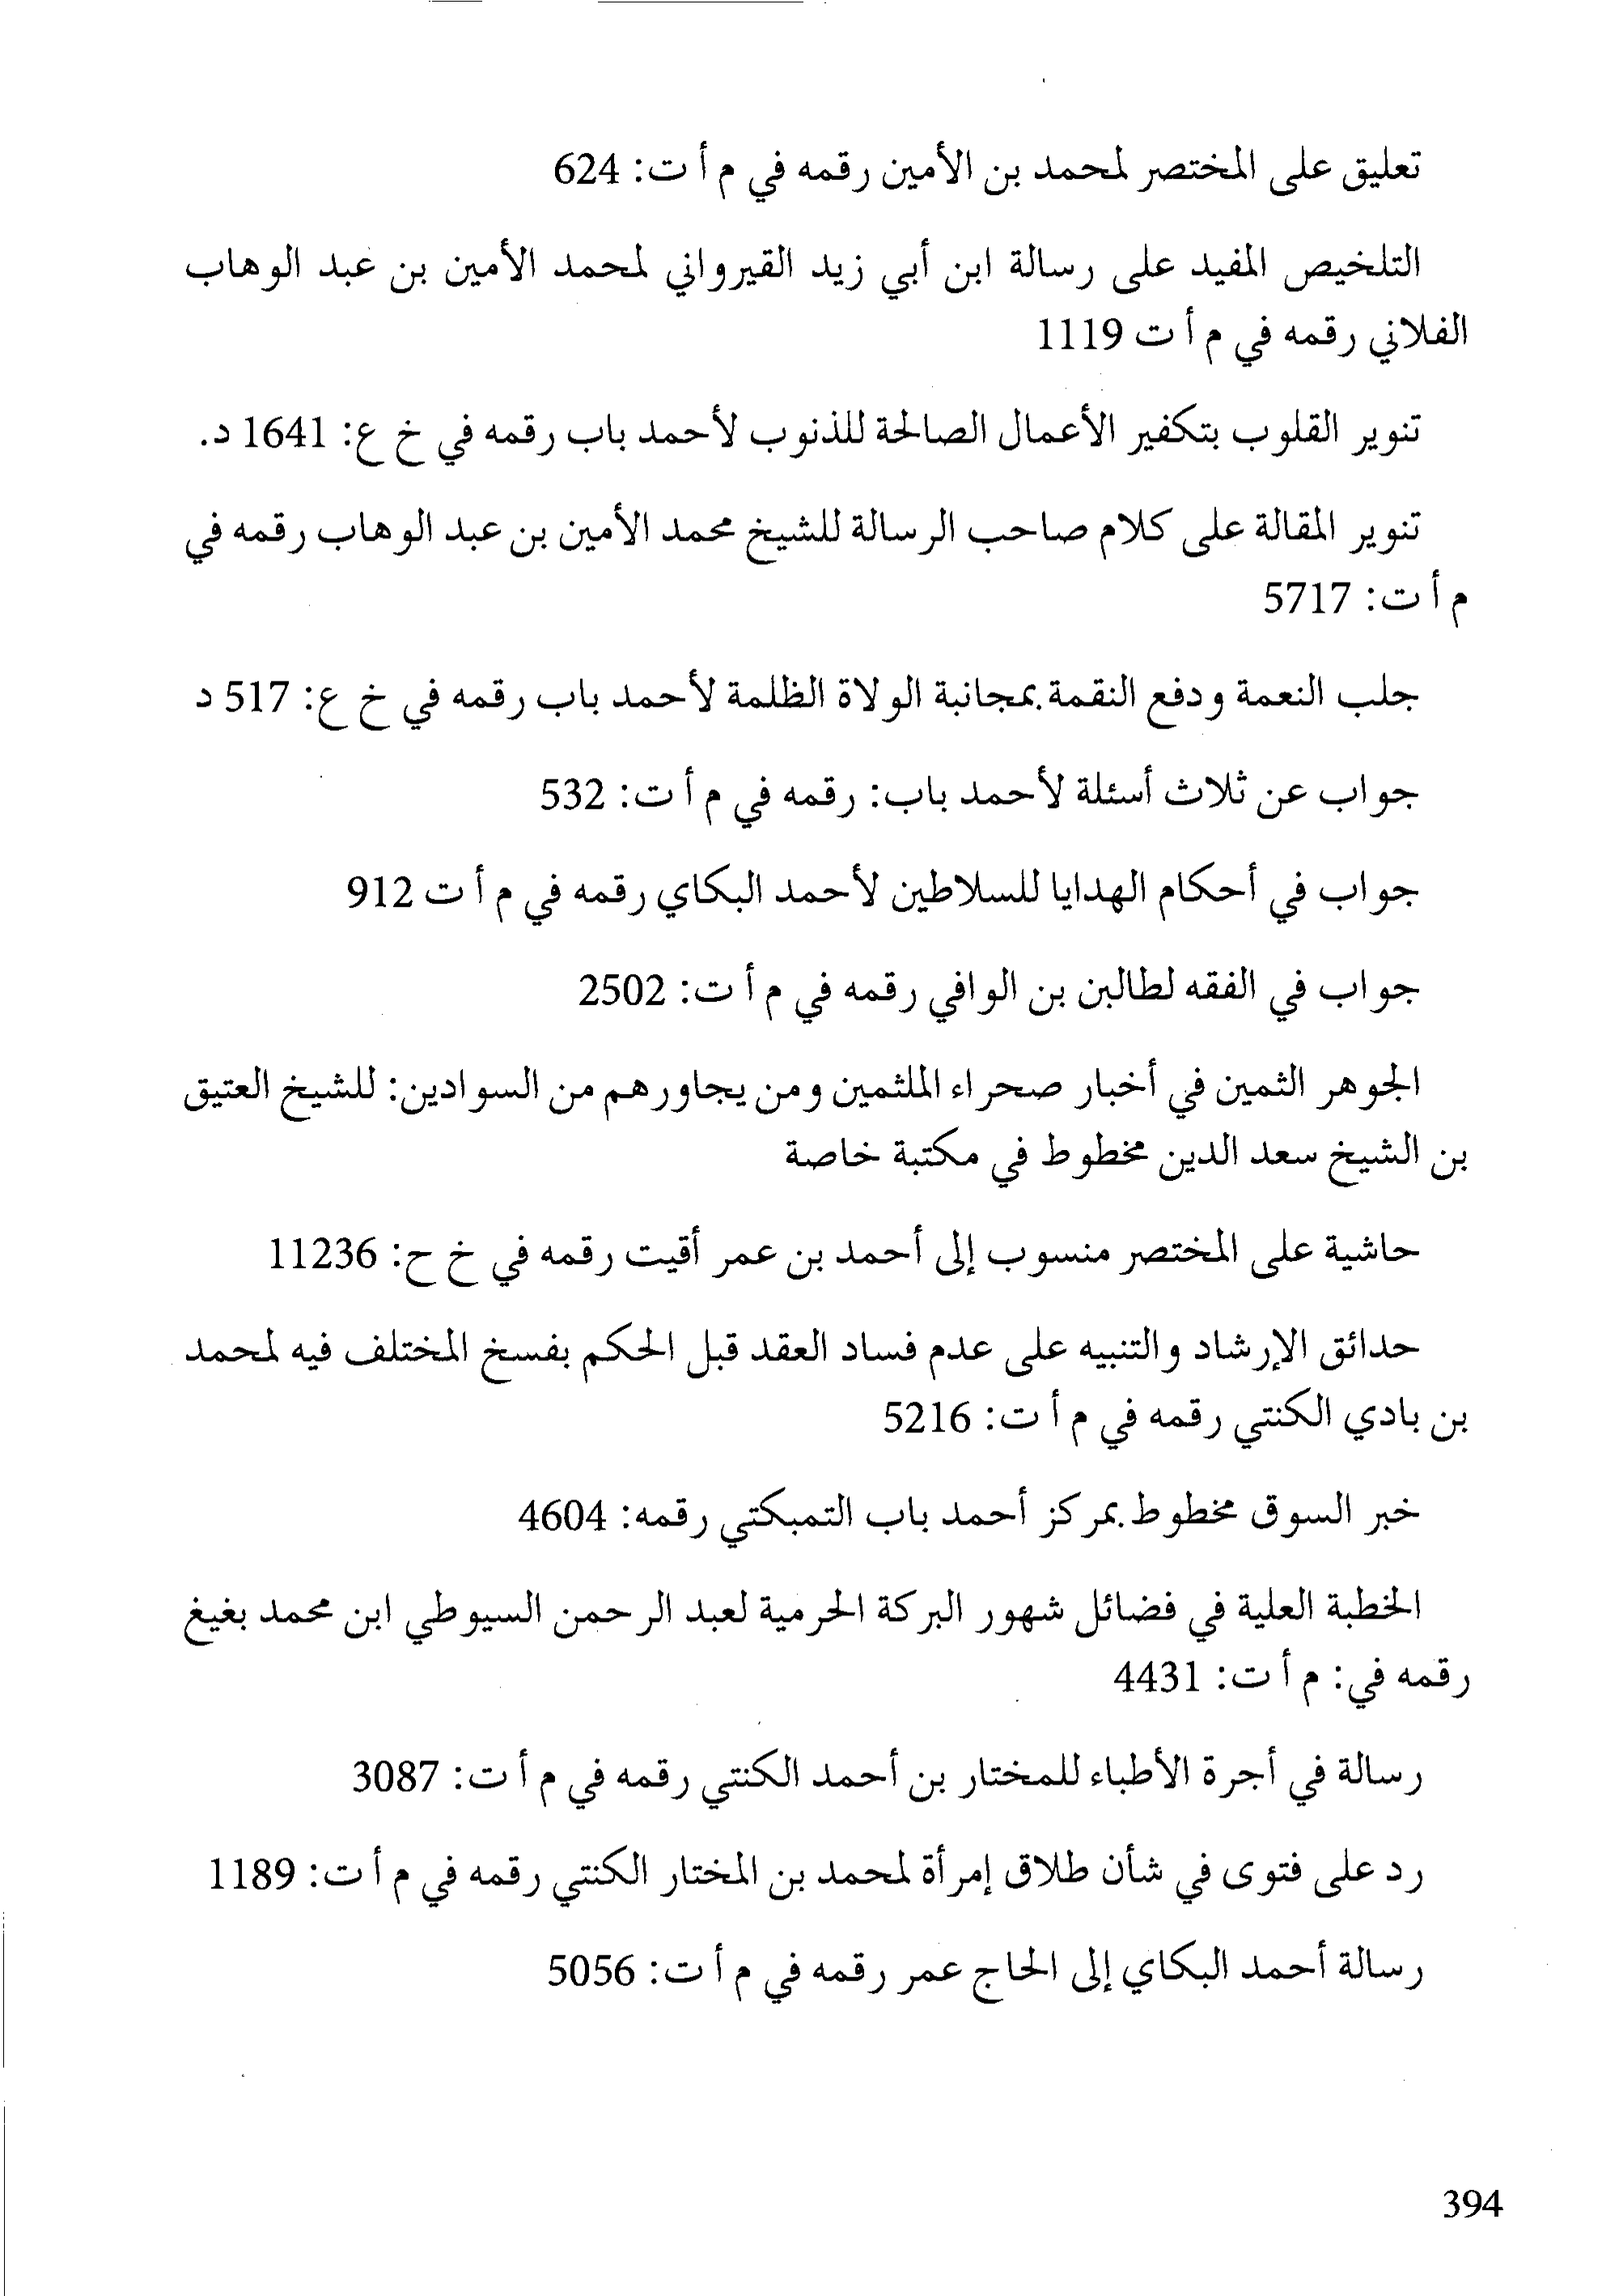 تعليق على المختصر لمحمد بن الأمين رقمه في م أ ت: 624
التلخيص المفيد على رسالة ابن أبي زيد القيرواني لمحمد الأمين بن عبد الوهاب
الفلاني رقمه في م أ ت 1119
تنوير القلوب بتكفير الأعمال الصالحة للذنوب لأحمد باب رقمه في خ ع: 1641 د.
تنوير المقالة على كلام صاحب الرسالة للشيخ محمد الأمين بن عبد الوهاب رقمه في
م أ ت: 5717
جلب النعمة ودفع النقمة بمجانبة الولاة الظلمة لأحمد باب رقمه في خ ع: 517 د
جواب عن ثلاث أسئلة لأحمد باب: رقمه في م أ ت: 532
جواب في أحكام الهدايا للسلاطين لأحمد البكاي رقمه في م أ ت 912
جواب في الفقه لطالبن بن الوافي رقمه في م أ ت: 2502
الجوهر الثمين في أخبار صحراء الملثمين ومن يجاورهم من السوادين: للشيخ العتيق
بن الشيخ سعد الدين مخطوط في مكتبة خاصة
حاشية على المختصر منسوب إلى أحمد بن عمر أقيت رقمه في خ ح: 11236
حدائق الإرشاد والتنبيه على عدم فساد العقد قبل الحكم بفسخ المختلف فيه لمحمد
بن بادي الكنتي رقمه في م أ ت: 5216
خبر السوق مخطوط بمركز أحمد باب التمبكتي رقمه: 4604
الخطبة العلية في فضائل شهور البركة الحرمية لعبد الرحمن السيوطي ابن محمد بغيغ
رقمه في: م أ ت: 4431
رسالة في أجرة الأطباء للمختار بن أحمد الكنتي رقمه في م أ ت: 3087
رد على فتوى في شأن طلاق إمرأة لمحمد بن المختار الكنتي رقمه في م أ ت: 1189
رسالة أحمد البكاي إلى الحاج عمر رقمه في م أ ت: 5056
394